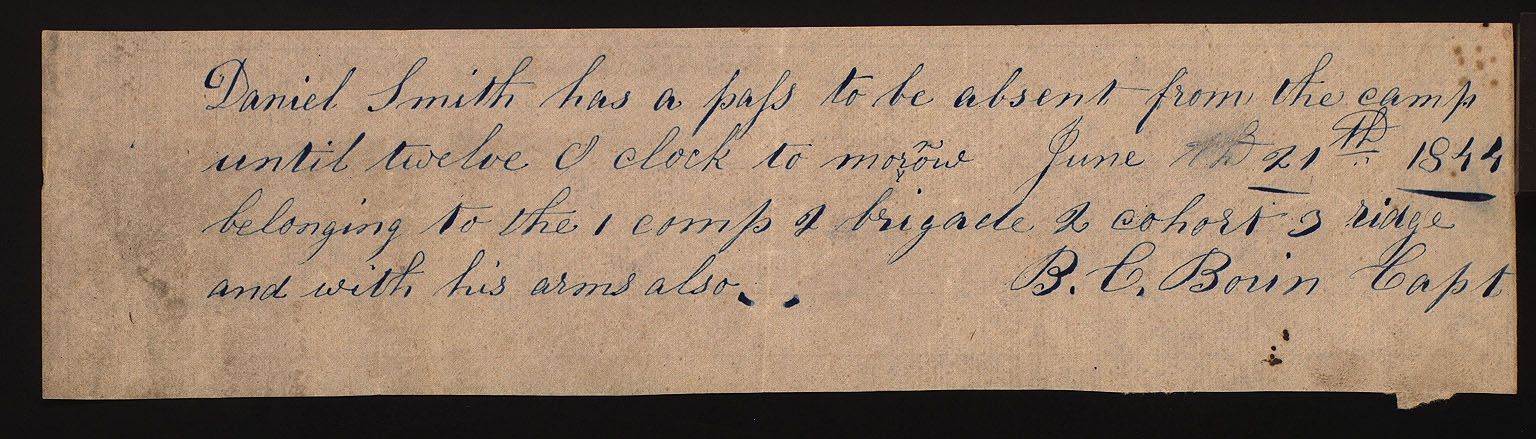 Daniel Smith has a paſs to be absent from the camp
until twelve O clock to morow June 21th 1844
belonging to the 1 comp 2 brigade 2 cohort 3 ridge
and with his arms also.
B. C. Capt